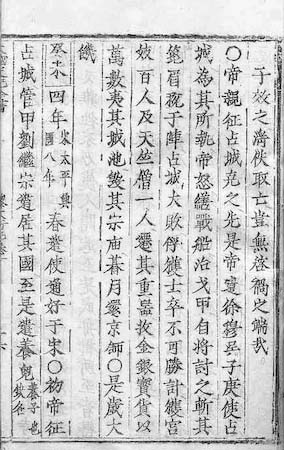 子效之滛佚取亡豈無啓禍之端哉
○帝親征占城克之先是帝遣徐穆吳子庚使占
城為其所執帝怒繕戰船治戈甲自將討之斬其
篦眉稅于陣占城大敗俘獲士卒不可勝計獲宮
妓百人及天竺僧一人遷其重器收金銀寶貨以
萬數夷其城池毀其宗庙朞月還京師○是歲大
饑
癸未四年宋太平興國八年春遣使通好于宋○初帝征
占城管甲劉繼宗遁居其國至是遣養兒養子也缺姓